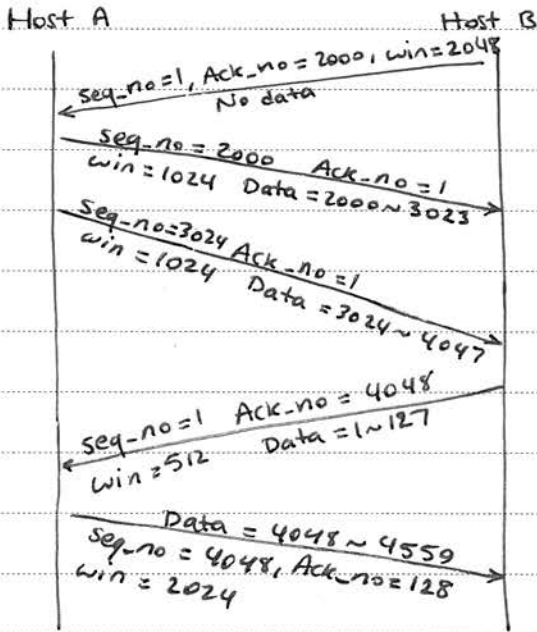 Host A
Host B
seq_no=1, Ack_no=2000, win=2048
No data
seq_no=2000 Ack_no=1
win=1024 Data=2000~3023
seq_no=3024 Ack_no=1
win=1024 Data=3024~4047
seq_no=1 Ack_no=4048
win=512 Data=1~127
Data=4048~4559
seq_no=4048, Ack_no=128
win=2024